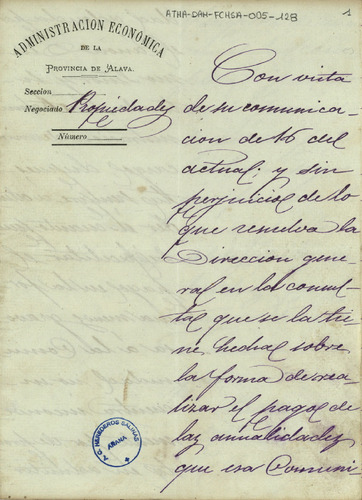 ATHA-DAH-FCHSA-005-12B
1
ADMINISTRACION ECONÓMICA
DE LA
PROVINCIA DE ALAVA.
Seccion
Negociado Propiedades
Número
Con vista
de su comunica-
cion de 16 del
actual; y sin
perjuicio de lo
que resuelva la
Direccion gene-
ral en la consul-
ta que se la tie-
ne hecha sobre
la forma de rea-
lizar el pago de
las anualidades
que esa Comuni
A.C. HEREDEROS SALINAS
AÑANA